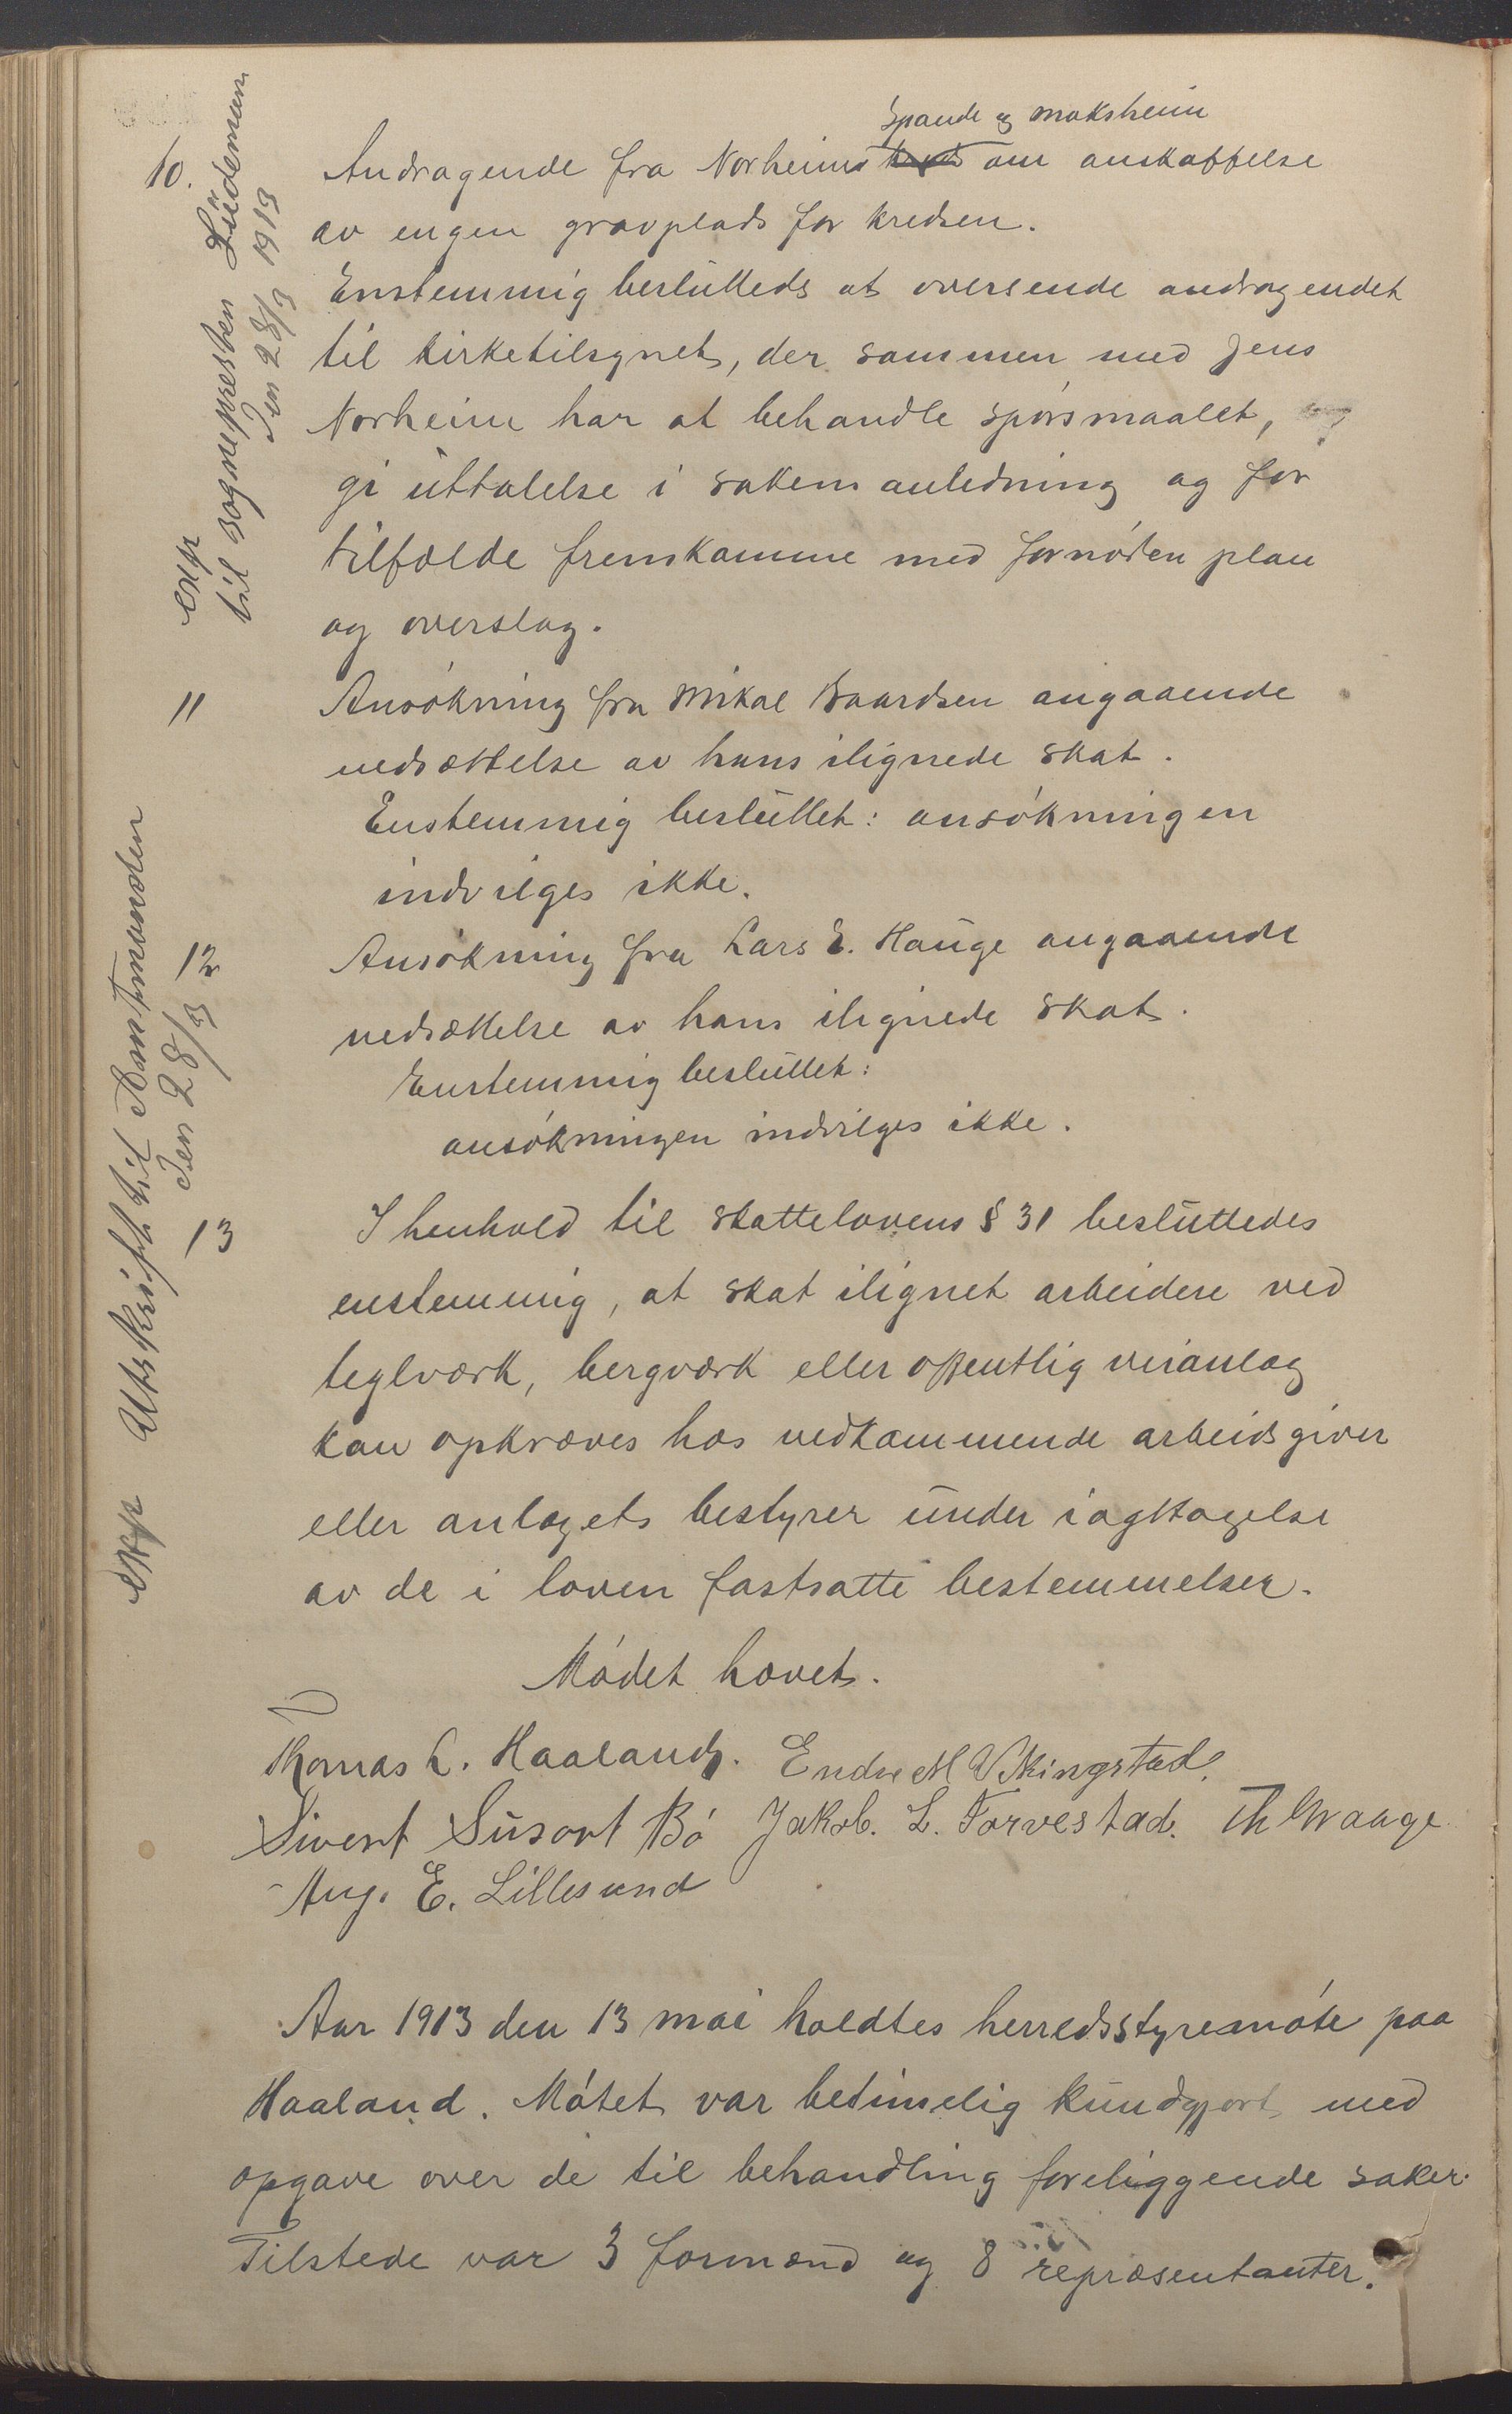 Spande og Moksheim
10. Andragende fra Norheims om anskaffelse
av engen gravplads for kredsen.
Enstemmig besluttedes at oversende andragendet
til kirketilsynet, der sammen med Jens
Norheim har at behandle spørsmaalet,
gi uttalelse i sakens anledning og for
tilfælde fremkomme med fornøden plan
og overslag.
exp
til sognepresten Lüdemann
Den 28/3 1913
11 Ansøkning fra Mikal Baardsen angaaende
nedsættelse av hans ilignede skat.
Enstemmig besluttet: ansøkningen
indvilges ikke.
12 Ansøkning fra Lars E. Hauge angaaende
nedsættelse av hans ilignede skat.
Enstemmig besluttet:
ansøkningen indvilges ikke.
13 I henhold til skattelovens § 31 besluttedes
enstemmig, at skat ilignet arbeidere ved
teglværk, bergværk eller offentlig veianlæg
kan opkræves hos vedkommende arbeidsgiver
eller anlægets bestyrer under iagttagelse
av de i loven fastsatte bestemmelser.
exp Utskrift til Amtmanden
Den 28/3
Mødet hævet.
Thomas L. Haaland. Endre M Vikingstad.
Sivert Susort Bø Jakob. L. Torvestad. Th Waage
Aug. E. Lillesund
Aar 1913 den 13 mai holdtes herredsstyremøte paa
Haaland. Møtet var betimelig kundgjort med
opgave over de til behandling foreliggende saker.
Tilstede var 3 formænd og 8 repræsentanter.